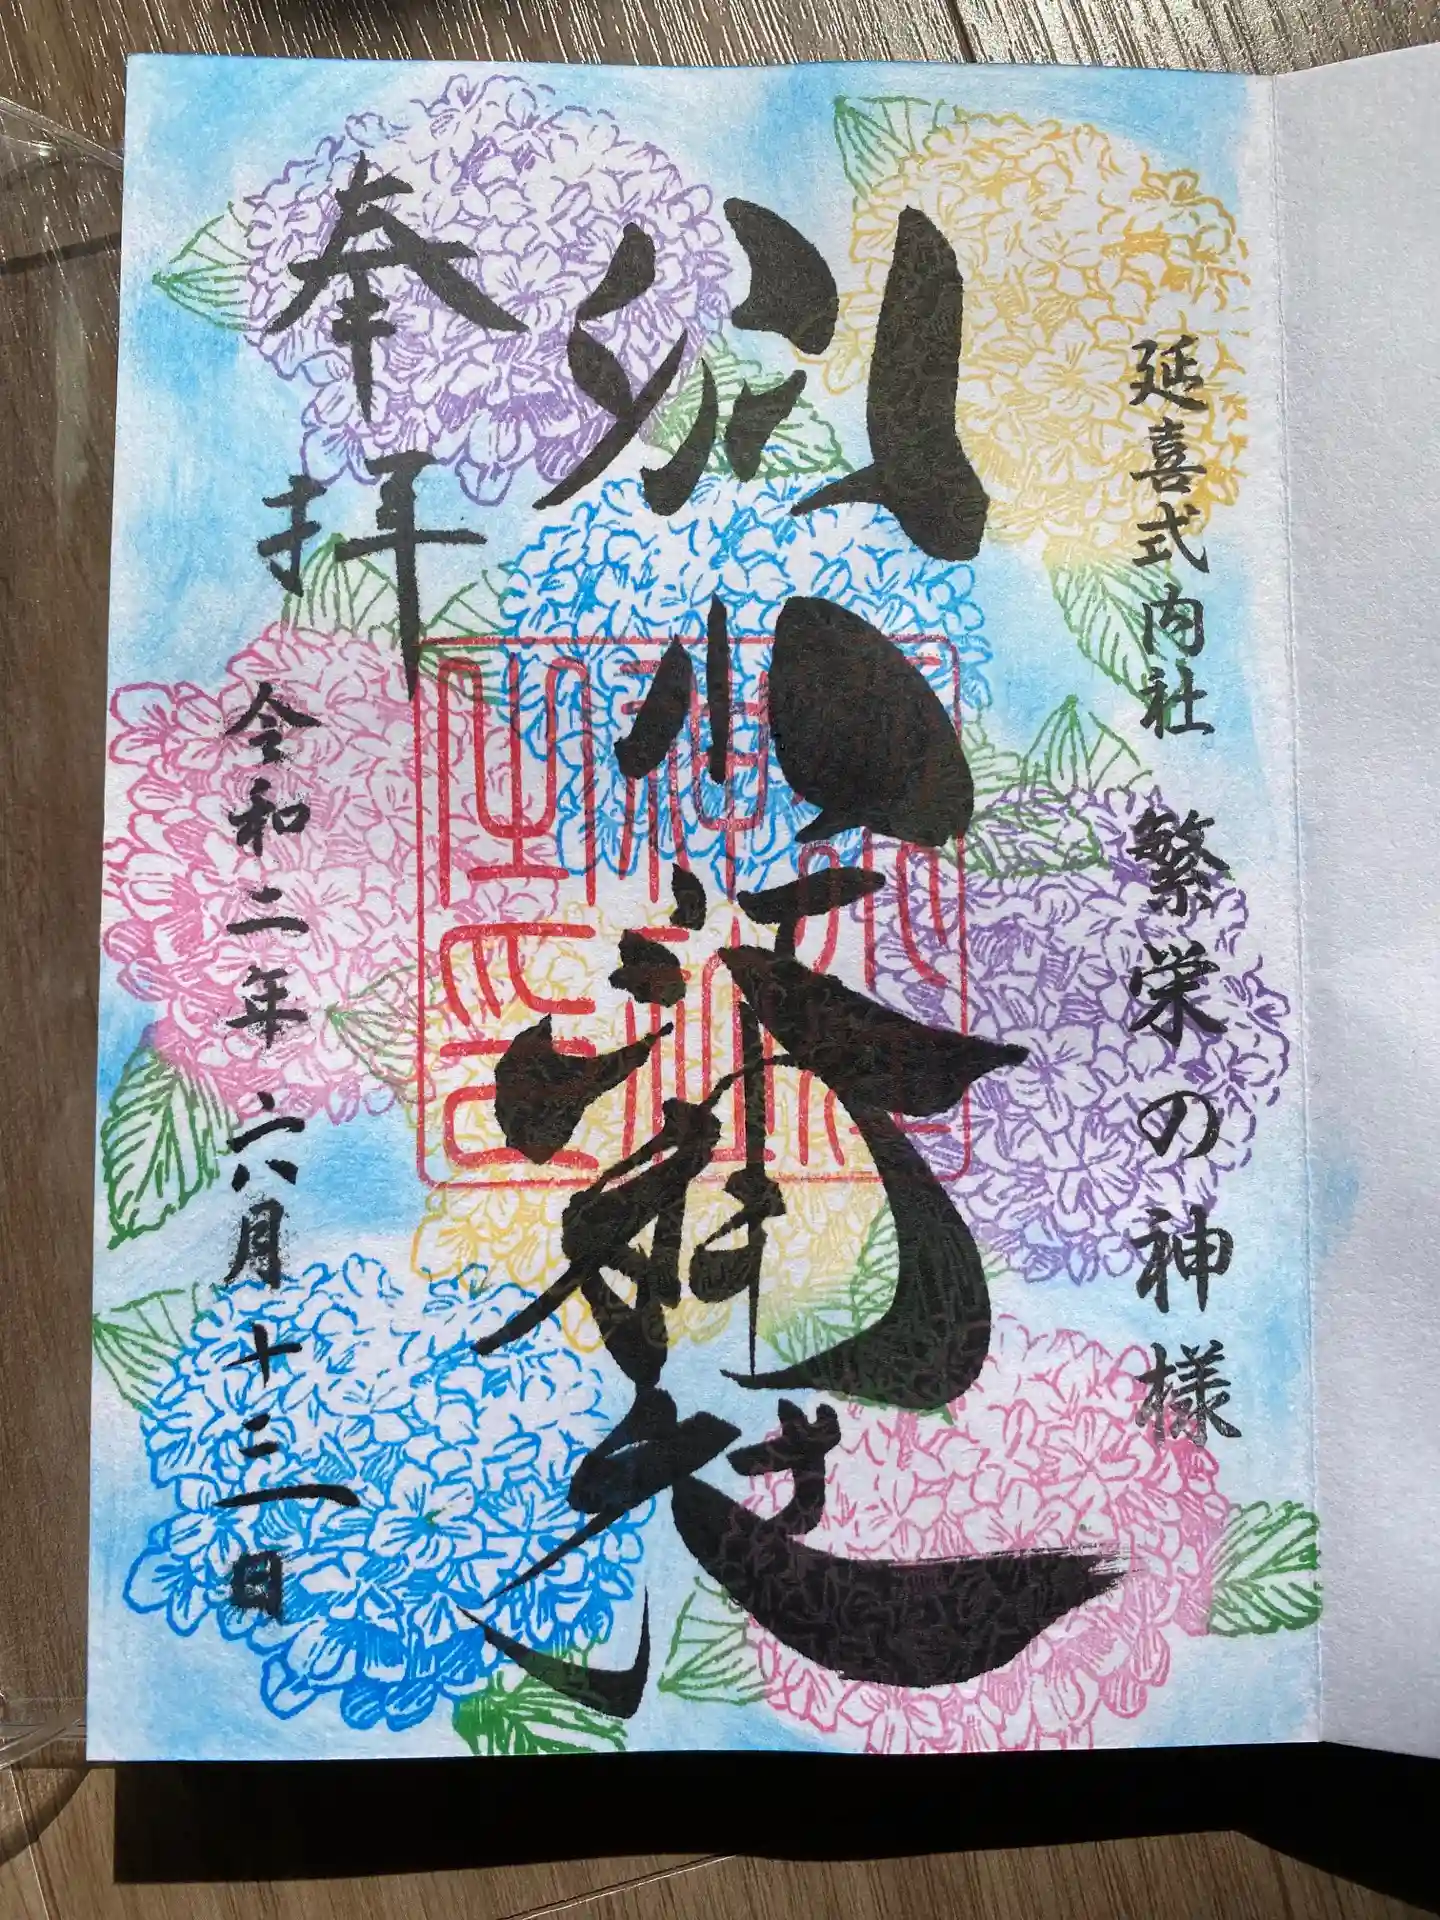 延喜式内社 繁栄の神様
別小江神社
奉拝
令和二年六月十三日